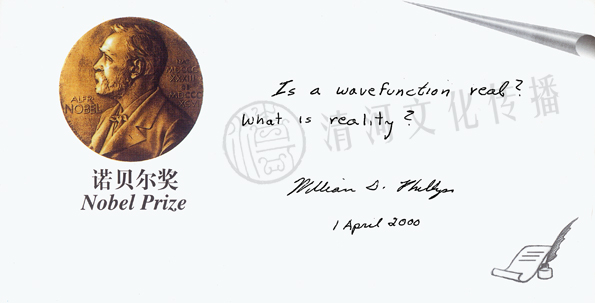 ALFR
NOBEL
诺贝尔奖
Nobel Prize
Is a wavefunction real?
What is reality?
清河文化传播
William D. Phillips
1 April 2000